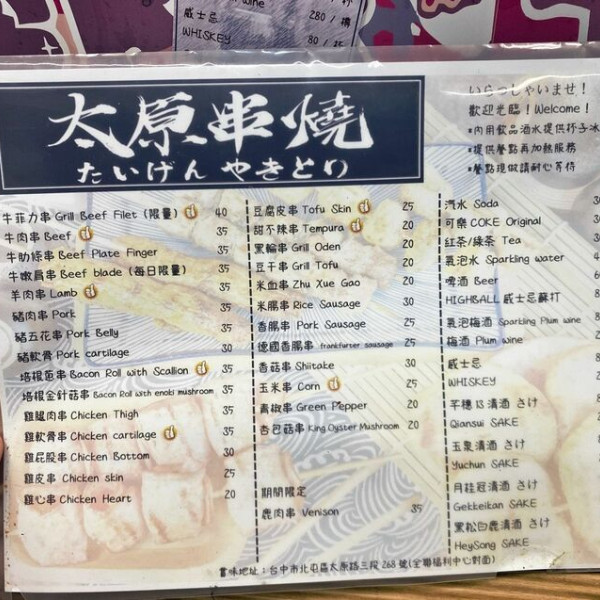 威士忌 280 / 樽
WHISKEY 80 /
太原串燒
たいげん やきとり
いらっしゃいませ!
歡迎光臨!Welcome!
*內用飲品酒水提供杯子冰
*提供餐點再加熱服務
*餐點現做請耐心等待
牛菲力串 Grill Beef Filet (限量) 40
牛肉串 Beef 35
牛肋條串 Beef Plate Finger 35
牛嫩肩串 Beef blade (每日限量) 35
羊肉串 Lamb 35
豬肉串 Pork 35
豬五花串 Pork Belly 35
豬軟骨 Pork cartilage 30
培根蔥串 Bacon Roll with Scallion 35
培根金針菇串 Bacon Roll with enoki mushroom 35
雞腿肉串 Chicken Thigh 35
雞軟骨串 Chicken cartilage 35
雞屁股串 Chicken Bottom 30
雞皮串 Chicken skin 25
雞心串 Chicken Heart 20
豆腐皮串 Tofu Skin 25
甜不辣串 Tempura 20
黑輪串 Grill Oden 20
豆干串 Grill Tofu 20
米血串 Zhu Xue Gao 20
米腸串 Rice Sausage 30
香腸串 Pork Sausage 25
德國香腸串 frankfurter sausage 25
香菇串 Shiitake 30
玉米串 Corn 25
青椒串 Green Pepper 20
杏包菇串 King Oyster Mushroom 20
期間限定
鹿肉串 Venison 35
汽水 Soda
可樂 COKE Original
紅茶/綠茶 Tea
氣泡水 Sparkling water
啤酒 Beer
HIGHBALL 威士忌蘇打
氣泡梅酒 Sparkling Plum wine
梅酒 Plum wine
威士忌
WHISKEY
千穗 IS 清酒 さけ
Qiansui SAKE
玉泉清酒 さけ
Yuchun SAKE
月桂冠清酒 さけ
Gekkeikan SAKE
黑松白鹿清酒 さけ
HeySong SAKE
賞味地址:台中市北屯區太原路三段 268 號(全聯福利中心對面)